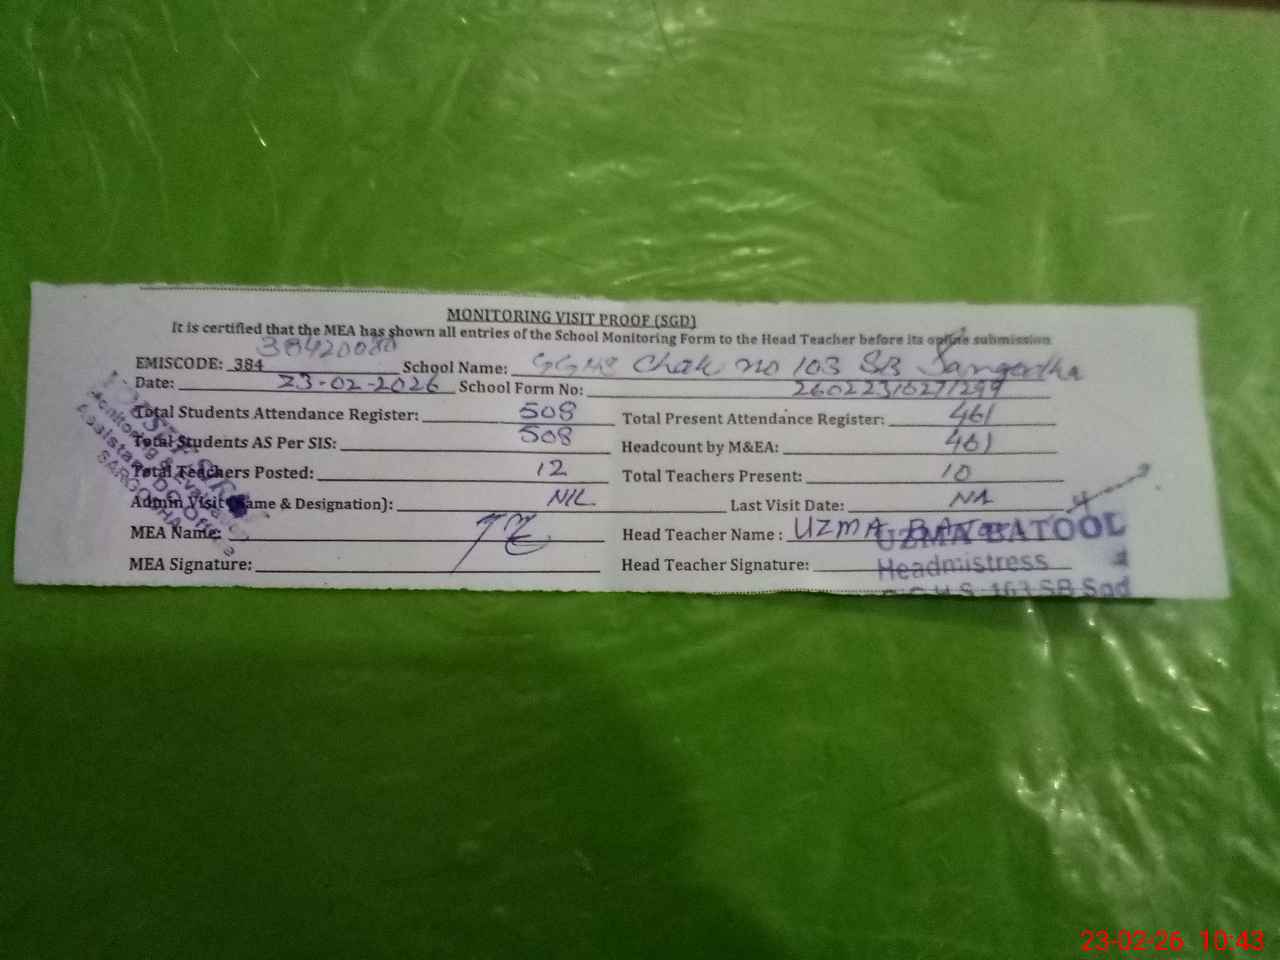 MONITORING VISIT PROOF (SGD)
It is certified that the MEA has shown all entries of the School Monitoring Form to the Head Teacher before its online submission
38420080
EMISCODE: 384 School Name: GGHS Chak no 103 SB Sargodha
Date: 23-02-2026 School Form No:
Total Students Attendance Register: 508 Total Present Attendance Register: 461
Total Students AS Per SIS: 508 Headcount by M&EA: 461
Total Teachers Posted: 12 Total Teachers Present: 10
Admin Visit (Name & Designation): NIL Last Visit Date: NA
MEA Name: Head Teacher Name : UZMA
MEA Signature: Head Teacher Signature:
UZMA BATOOL
Headmistress
SB Sgd
Monitoring & Evaluation
Assistant
SARGODHA
23-02-26 10:43